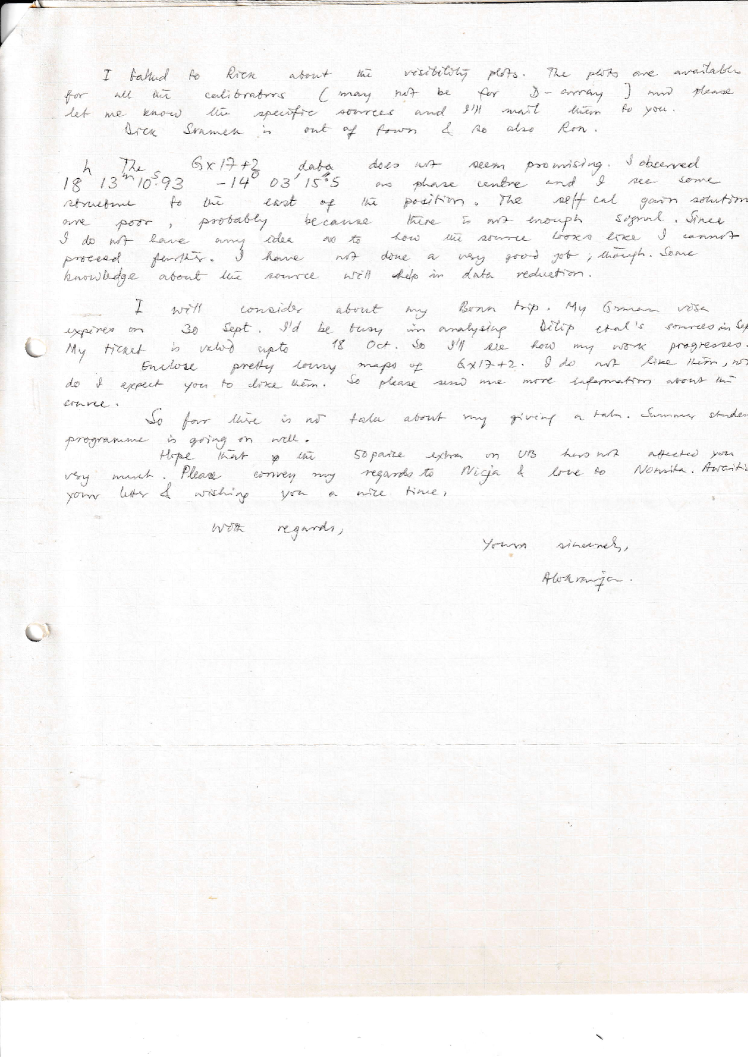 I talked to Rick about the visibility plots. The plots are available
for all the calibrators (may not be for D-array) and please
let me know the specific sources and I'll mail them to you.
Dick Sramek is out of town & so also Ron.
The Gx17+2 data does not seem promising. I observed
18h 13m 10s.93 -14° 03' 15".5 as phase centre and I see some
structure to the east of the position. The self cal gain solution
are poor, probably because there is not enough signal. Since
I do not have any idea as to how the source looks like I cannot
proceed further. I have not done a very good job, though. Some
knowledge about the source will help in data reduction.
I will consider about my Bonn trip. My German visa
expires on 30 Sept. I'd be busy in analysing Dilip etal's sources in Sep
My ticket is valid upto 18 Oct. So I'll see how my work progresses.
Enclose pretty lousy maps of Gx17+2. I do not like them,
do I expect you to like them. So please send me more information about the
source.
So far there is no talk about my giving a talk. Summer studen
programme is going on well.
Hope that the 50 paise extra on has not affected you
very much. Please convey my regards to & love to Awaiti
your letter & wishing you a nice time,
With regards,
Yours sincerely,